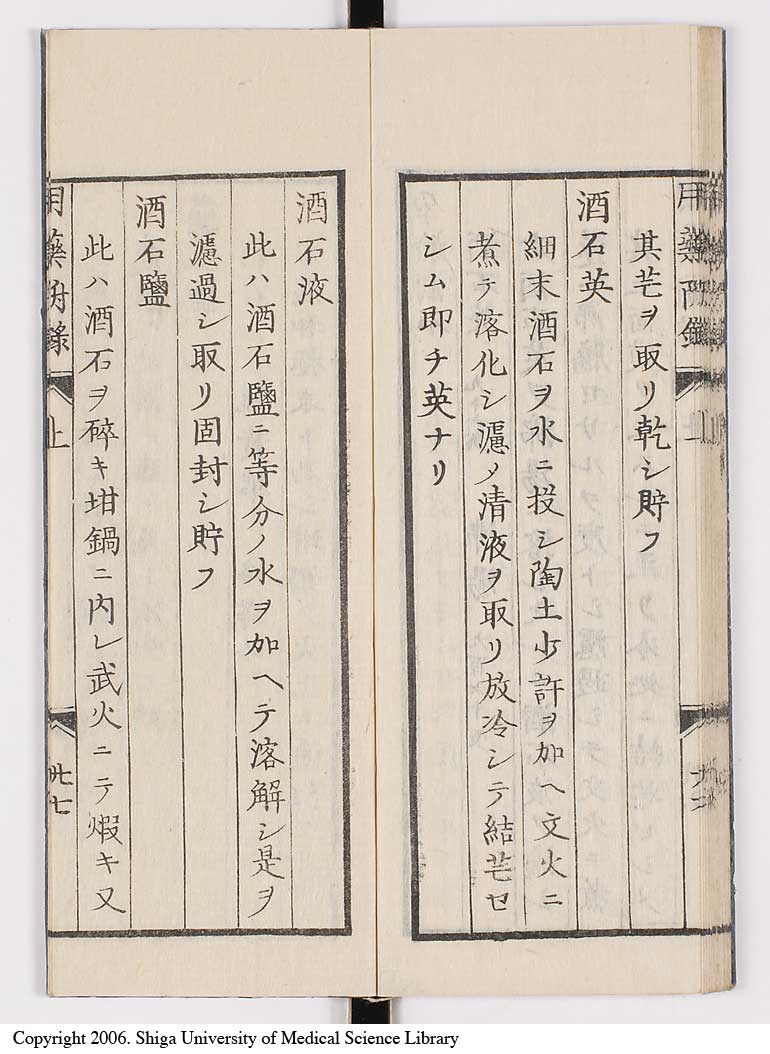 其芒ヲ取リ乾シ貯フ
酒石英
細末酒石ヲ水ニ投シ陶土少許ヲ加ヘ文火ニ
煮テ溶化シ濾メ清液ヲ取リ放冷シテ結芒セ
シム即チ英ナリ
酒石液
此ハ酒石鹽ニ等分ノ水ヲ加ヘテ溶解シ是ヲ
濾過シ取リ固封シ貯フ
酒石鹽
此ハ酒石ヲ碎キ坩鍋ニ内レ武火ニテ煆キ又
用藥附錄 上 廿七
Copyright 2006. Shiga University of Medical Science Library